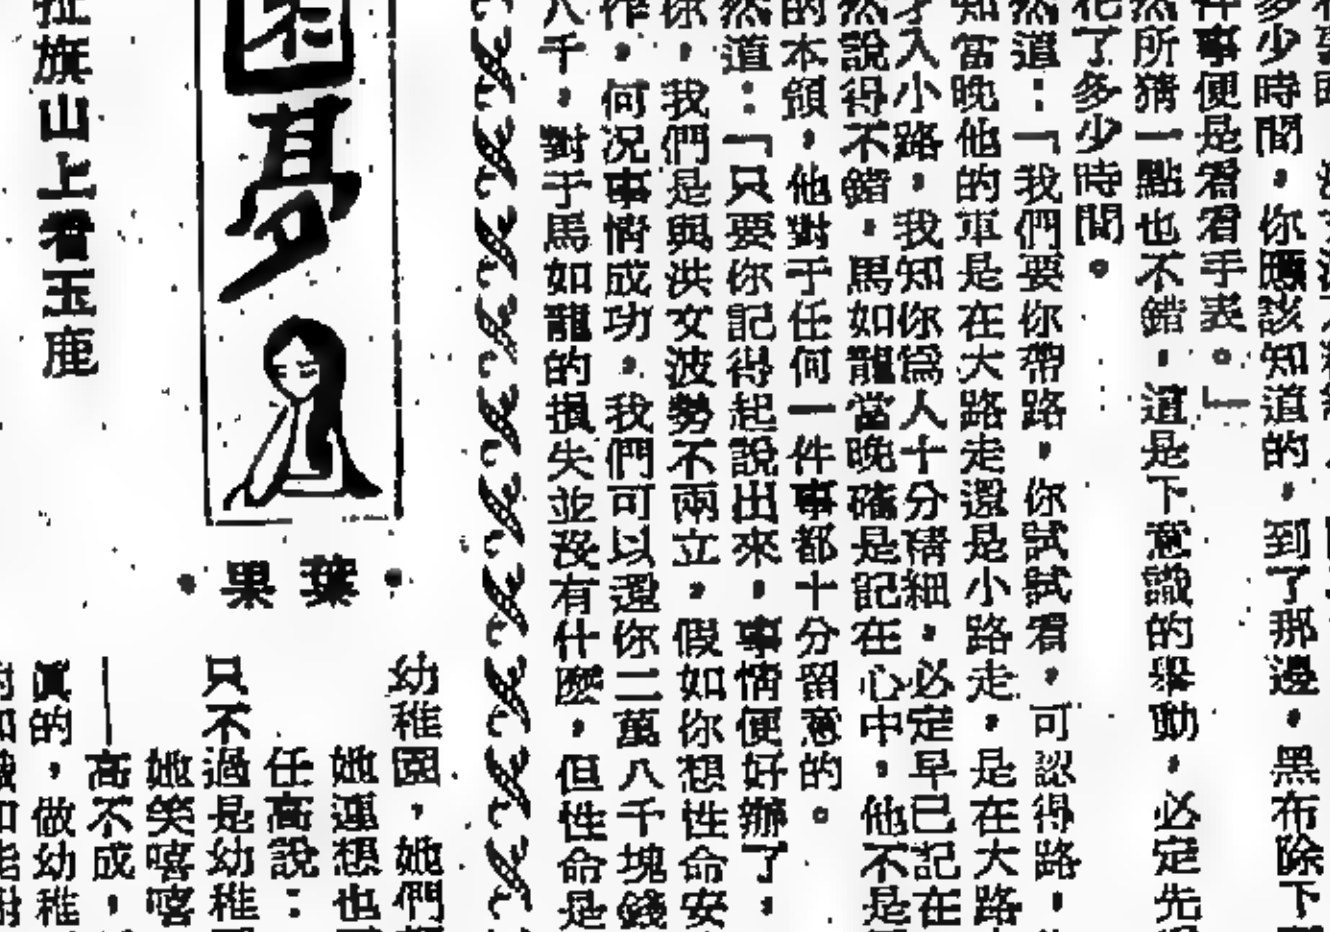 多少時間，你應該知道的，到了那邊，黑布除下
件事便是看看手表。」
然所猜一點也不錯，這是下意識的舉動，必定先
花了多少時間。
然道：「我們要你帶路，你試試看，可認得路，
知當晚他的車是在大路走還是小路走，是在大路
才入小路，我知你爲人十分精細，必定早已記在
然說得不錯，馬如龍當晚確是記在心中，他不是
的本領，他對于任何一件事都十分留意的。
然道：「只要你記得起說出來，事情便好辦了，
你，我們是與洪文波勢不兩立，假如你想性命安
作，何况事情成功，我們可以還你二萬八千塊錢
八千，對于馬如龍的損失並沒有什麽，但性命是
園夢
•葉果•
幼稚園，她們
她連想也
任高說：
只不過是幼稚
她笑嘻嘻
——高不成，
眞的，做幼稚
旗山上看玉鹿